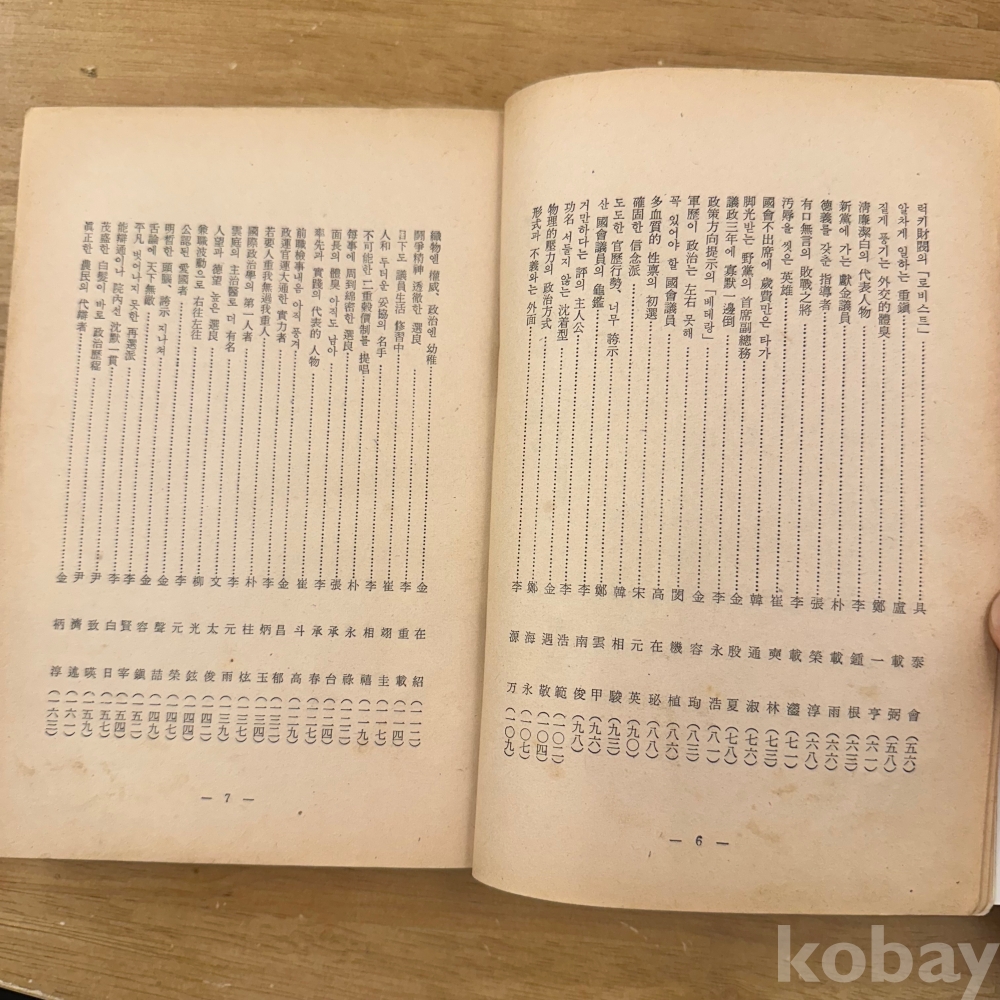 럭키財閥의 「로비스트」……具泰會(五六)
알차게 일하는 重鎭……盧載弼(五八)
질게 풍기는 外交的體臭……鄭一亨(六一)
淸廉潔白의 代表人物……李鍾根(六三)
新黨에 가는 獻金議員……朴載雨(六六)
德義를 갖춘 指導者……張榮淳(六八)
有口無言의 敗戰之將……李載灐(七一)
汚辱을 씻은 英雄……崔奭林(七三)
國會不出席에 歲費만은 타가……韓通淑(七六)
脚光받는 野黨의 首席副總務……金殷夏(七八)
議政三年에 寡默一邊倒……李永浩(八一)
政策方向提示의 「베테랑」……金容珣(八三)
軍歷이 政治는 左右 못해……閔機植(八六)
꼭 있어야 할 國會議員……高在珌(八八)
多血質的 性禀의 初選……宋元英(九〇)
確固한 信念派……韓相駿(九三)
도도한 官歷行勢、너무 誇示……鄭雲甲(九六)
산 國會議員의 龜鑑……李南俊(九八)
거만하다는 評의 主人公……李浩範(一〇二)
功名 서둘지 않는 沈着型……金遇敬(一〇四)
物理的壓力의 政治方式……鄭海永(一〇七)
形式과 不義와는 外面……李源万(一〇九)
— 6 —
織物엔 權威、政治엔 幼稚……金在紹(一一二)
鬪爭精神 透徹한 選良……李重載(一一四)
目下도 議員生活 修習中……崔翊圭(一一七)
人和 두터운 妥協의 名手……李相禧(一一九)
不可能한 二重穀價制를 提唱……朴永祿(一二二)
每事에 周到綿密한 選良……張承台(一二四)
面長의 體臭 아직도 남아……李承春(一二七)
率先과 實踐의 代表的 人物……崔斗高(一二九)
前職檢事내음 아직 풍겨……金昌郁(一三二)
政運官運大通한 實力者……李炳玉(一三四)
若要人重我無過我重人……朴柱炫(一三七)
國際政治學의 第一人者……李元雨(一三九)
雲庭의 主治醫로 더 有名……文太俊(一四二)
人望과 德望 높은 選良……柳光鉉(一四四)
兼職波動으로 右往左往……李元榮(一四七)
公認된 愛國者……金聲喆(一四九)
明晳한 頭腦、誇示 지나쳐……金容鎭(一五二)
舌論에 天下無敵……李賢宰(一五四)
平凡 벗어나지 못한 再選派……李白日(一五七)
能辯通이나 院內선 沈默一貫……尹致暎(一五九)
茂盛한 白髮이 바로 政治歷程……尹濟述(一六一)
眞正한 農民의 代辯者……金柄淳(一六三)
— 7 —
kobay